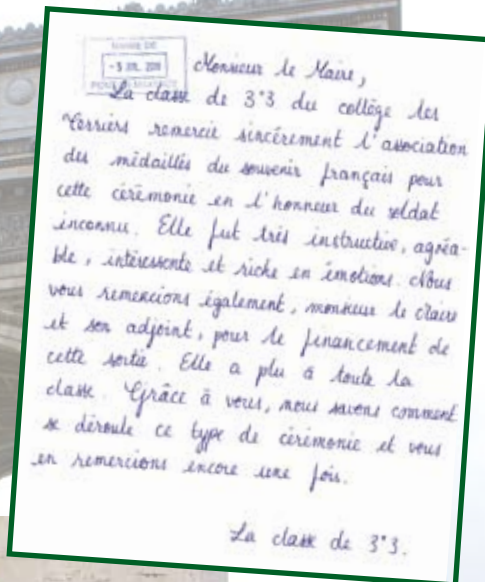 MAIRIE DE
-5 JUL. 2011
Monsieur le Maire,
La classe de 3°3 du collège les
Verriers remercie sincèrement l'association
des médaillés du souvenir français pour
cette cérémonie en l'honneur du soldat
inconnu. Elle fut très instructive, agréa-
ble, intéressente et riche en émotions. Nous
vous remercions également, monsieur le Maire
et son adjoint, pour le financement de
cette sortie. Elle a plu à toute la
classe. Grâce à vous, nous savons comment
se déroule ce type de cérémonie et vous
en remercions encore une fois.
La classe de 3°3.